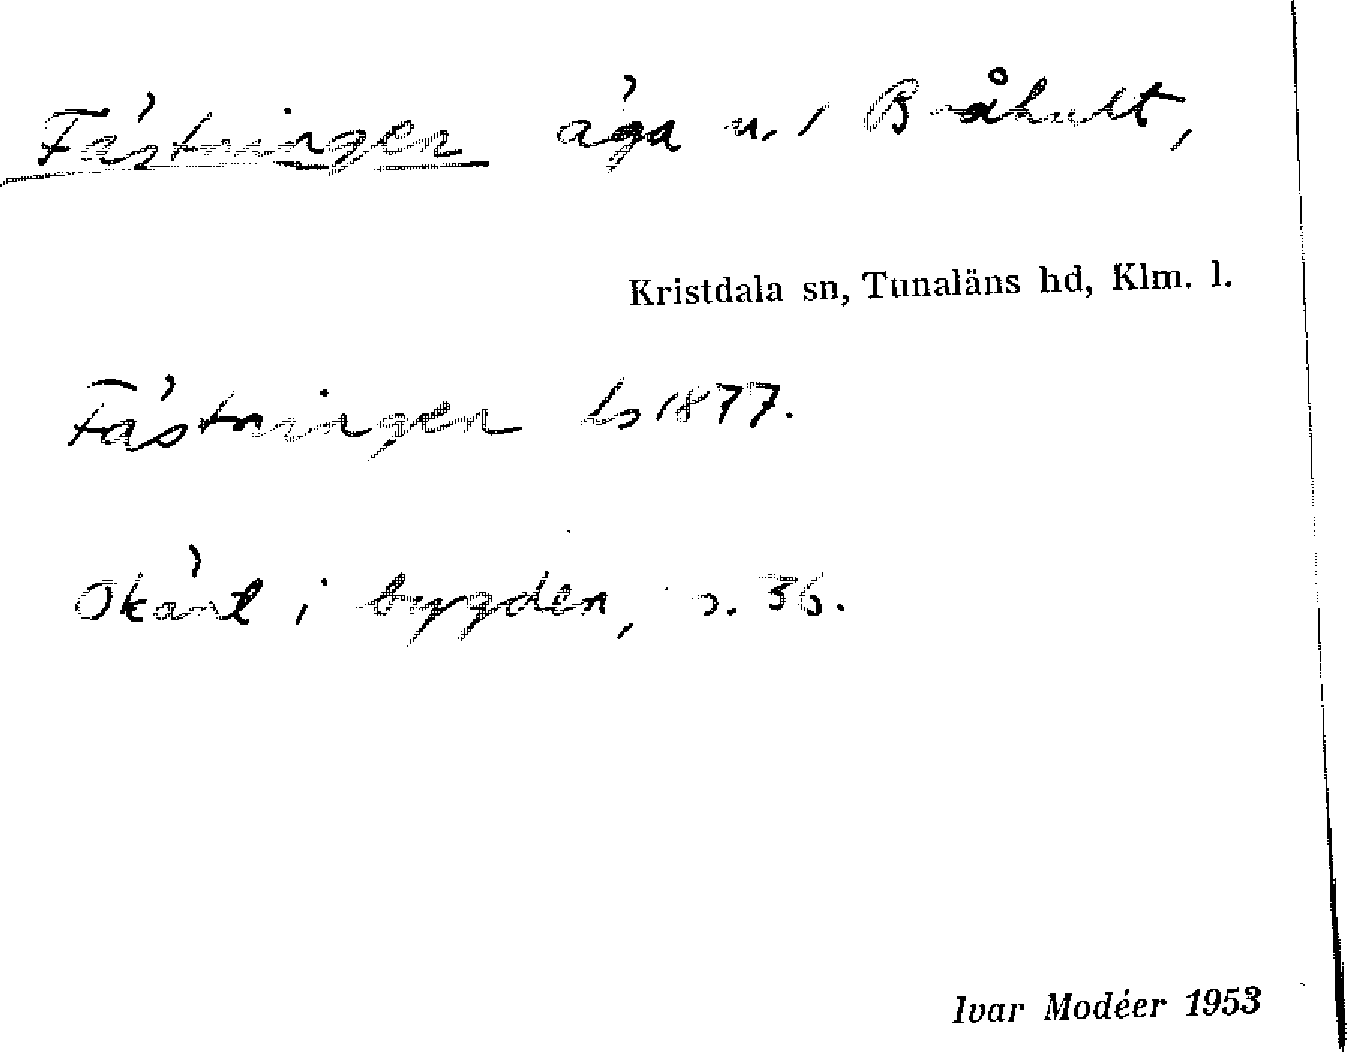 Fästningen äga u. Bråhult,
Kristdala sn, Tunaläns hd, Klm. l.
Fästningen Ls 1877.
Okänt i bygden, s. 36.
Ivar Modéer 1953